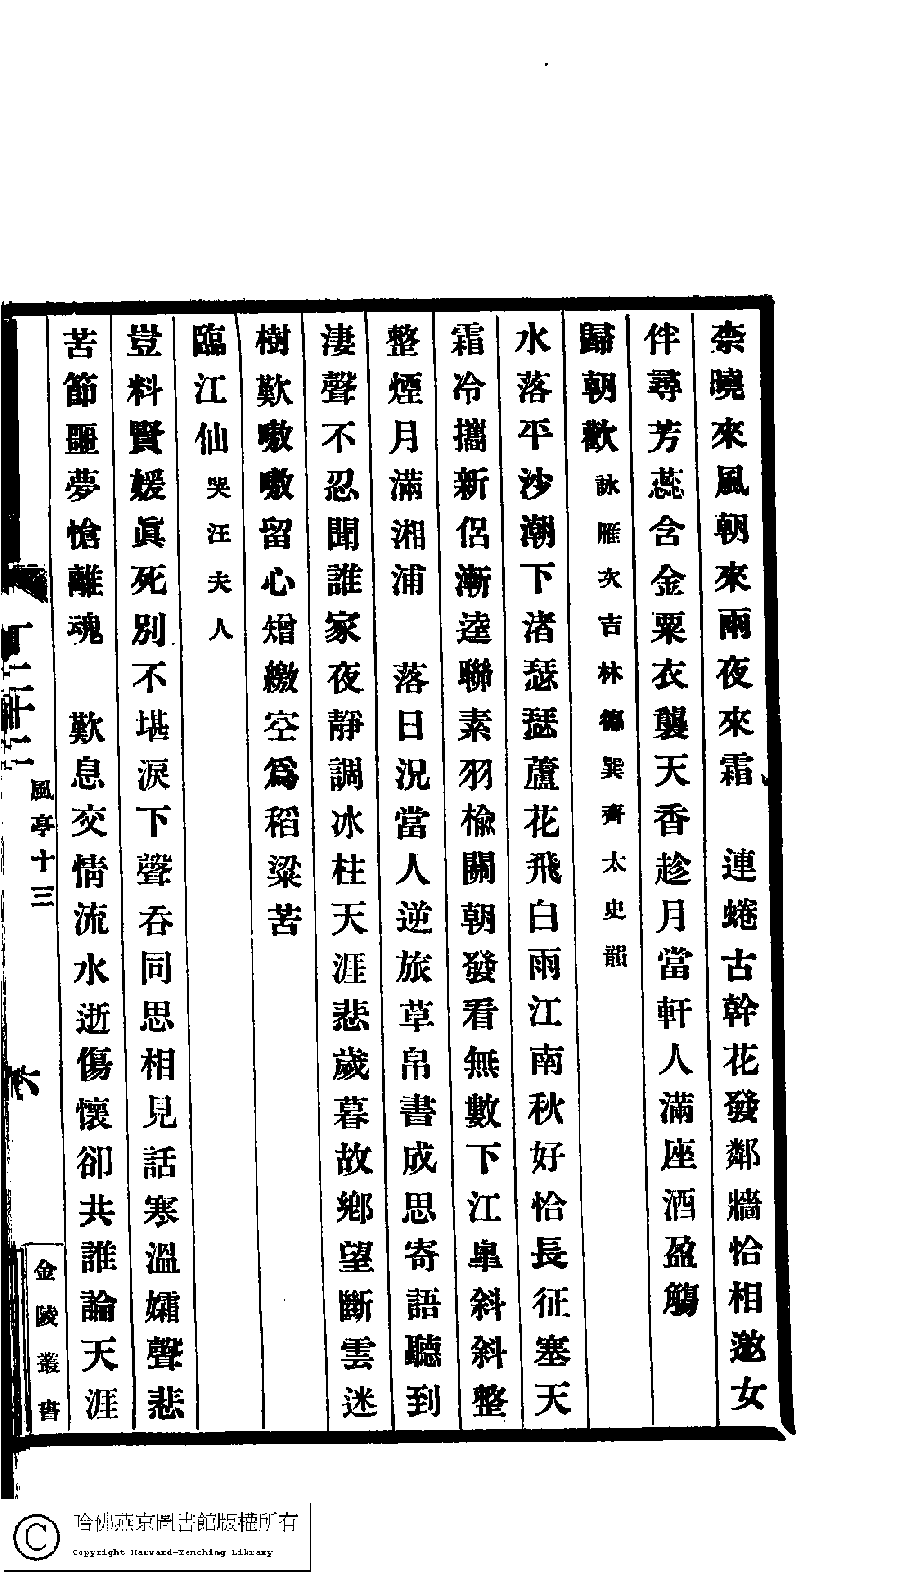 柰曉來風朝來雨夜來霜　連蜷古幹花發鄰牆恰相邀女
伴尋芳蕊含金粟衣襲天香趁月當軒人滿座酒盈觴
歸朝歡詠雁次吉林德巽齊太史韻
水落平沙潮下渚瑟瑟蘆花飛白雨江南秋好恰長征塞天
霜冷攜新侶漸逵聯素羽楡關朝發看無數下江臯斜斜整
整煙月滿湘浦　落日況當人逆旅草帛書成思寄語聽到
淒聲不忍聞誰家夜靜調冰柱天涯悲歲暮故鄉望斷雲迷
樹歎嗷嗷留心矰繳空爲稻粱苦
臨江仙哭汪夫人
豈料賢媛眞死別不堪淚下聲吞同思相見話寒溫孀聲悲
苦節噩夢愴離魂　歎息交情流水逝傷懷卻共誰論天涯
風亭十三
金陵叢書
哈佛燕京圖書館版權所有
Copyright Harvard-Yenching Library